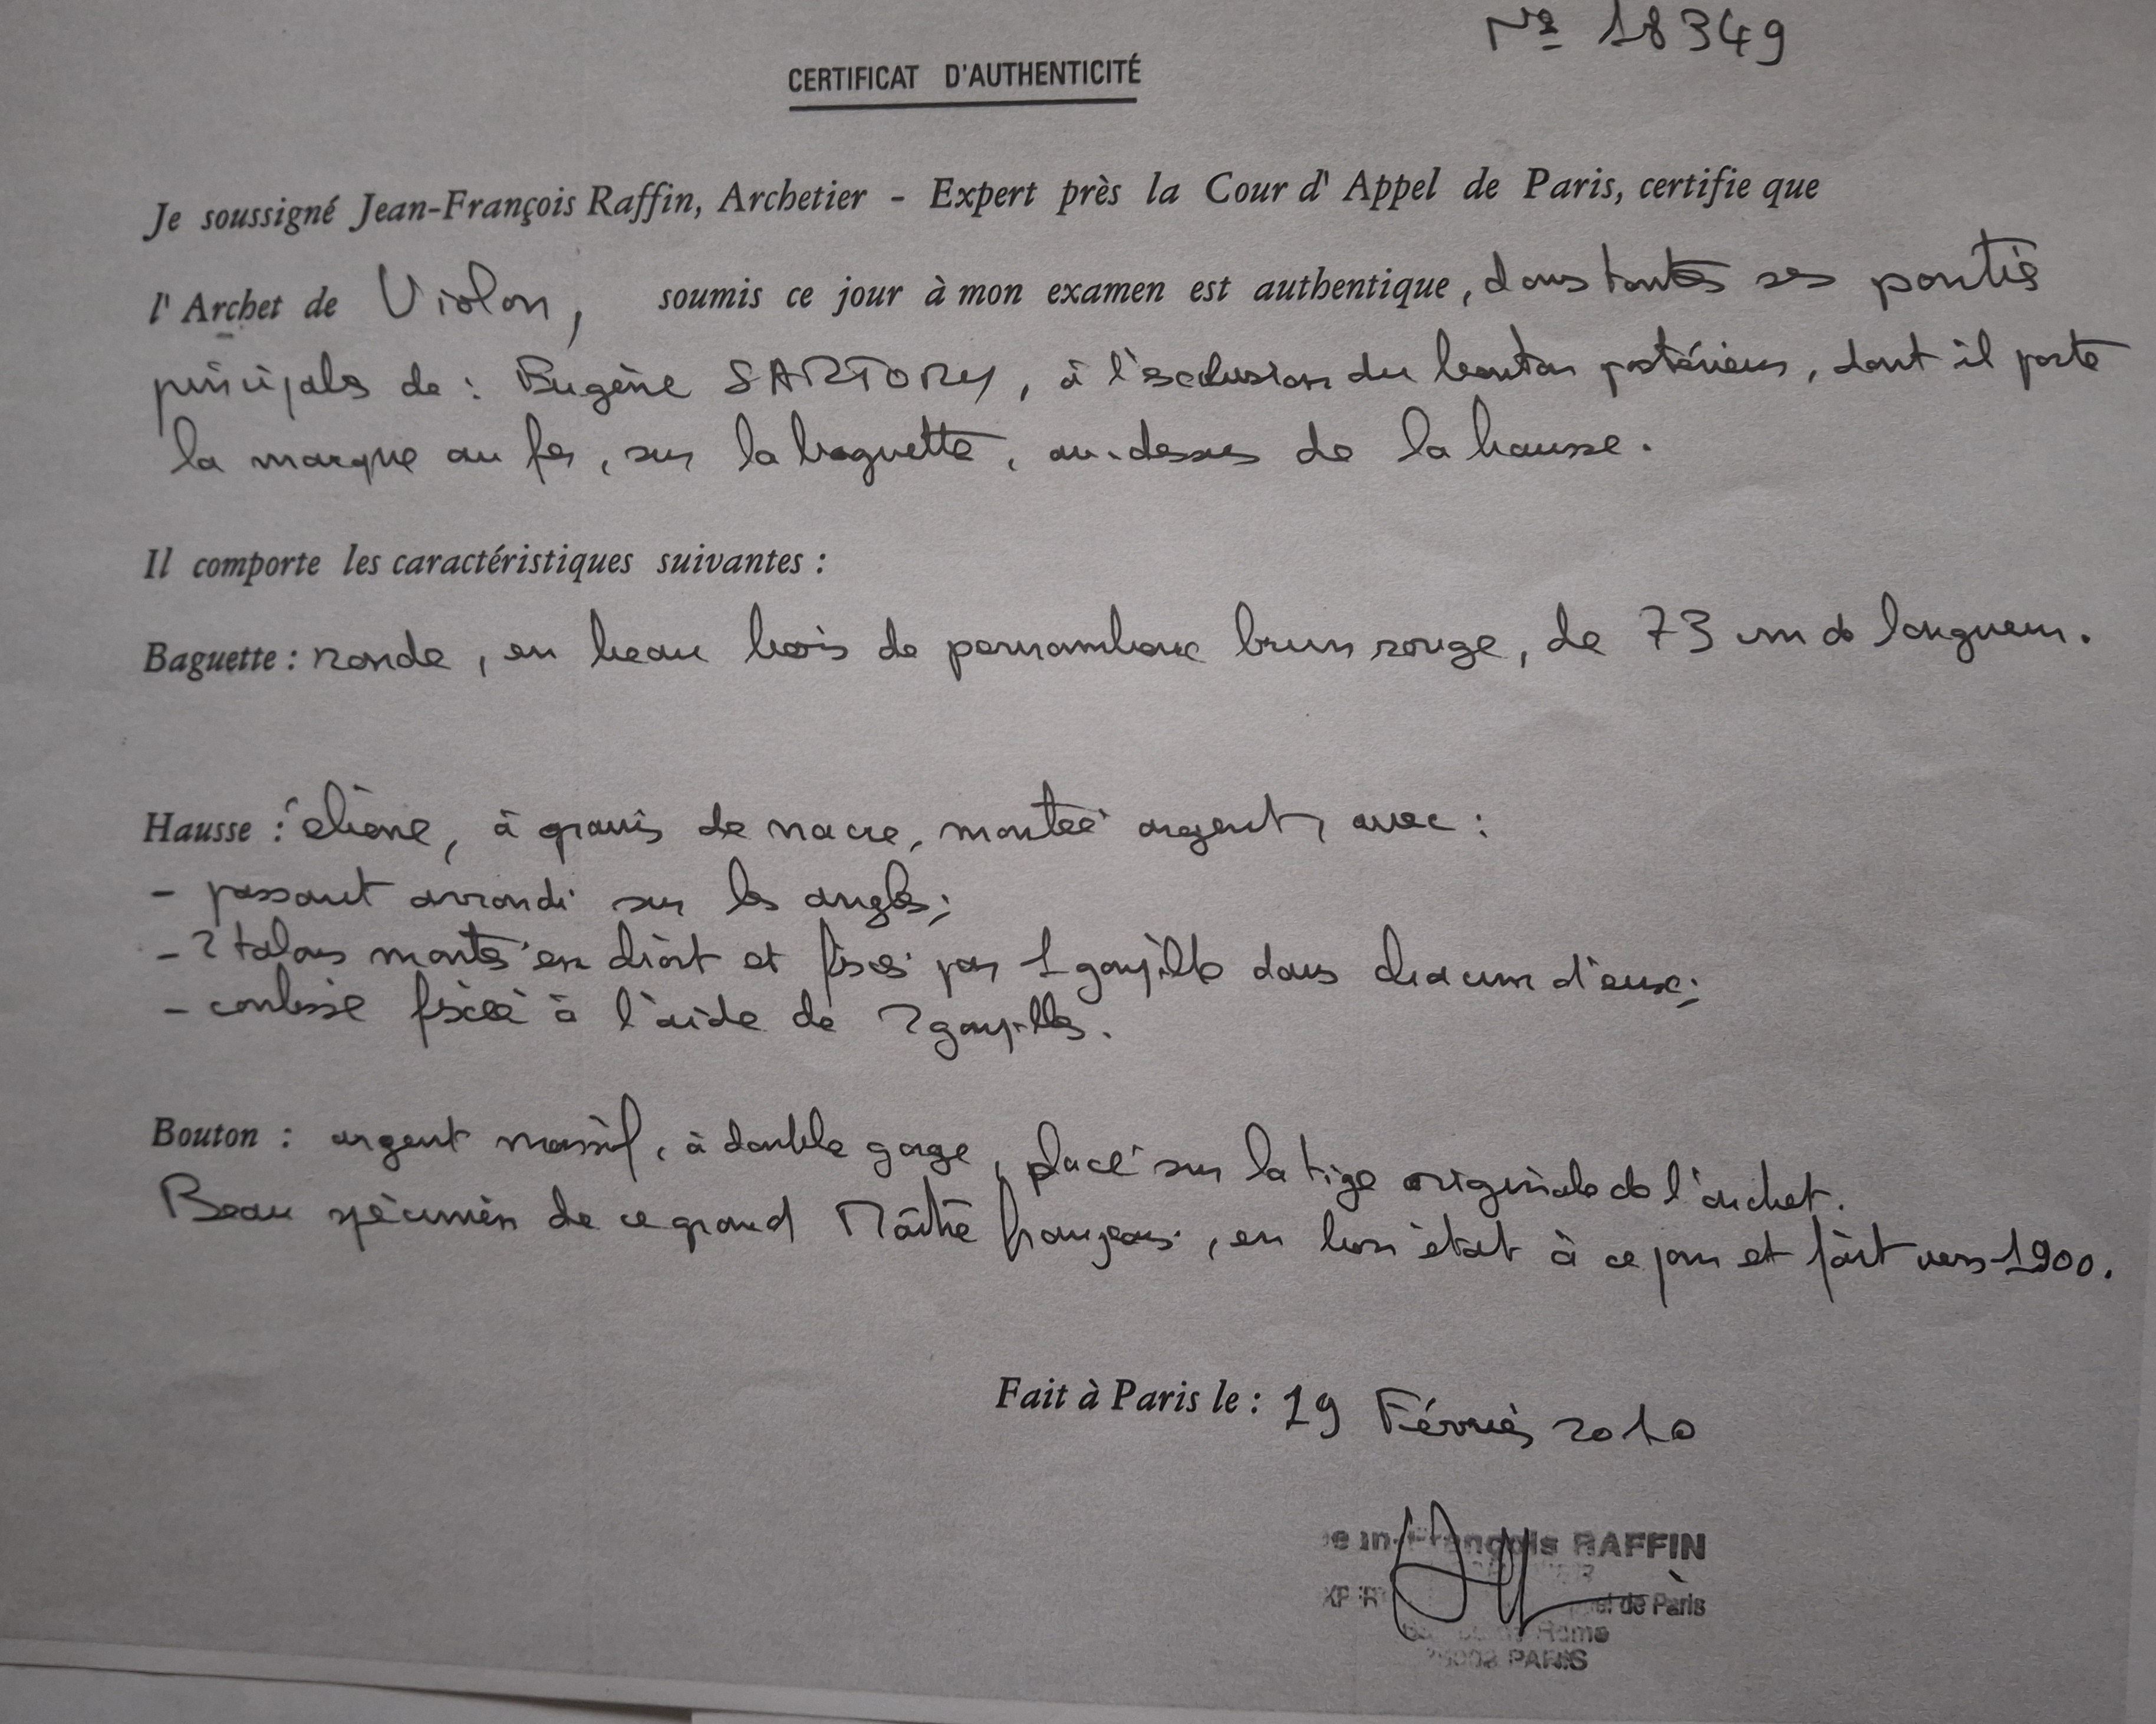 Nº 18349
CERTIFICAT D'AUTHENTICITÉ
Je soussigné Jean-François Raffin, Archetier - Expert près la Cour d' Appel de Paris, certifie que
l' Archet de Violon, soumis ce jour à mon examen est authentique, dans toutes ses parties
principales de : Eugène SARTORY, à l'exclusion du bouton postérieur, dont il porte
la marque au fer, sur la baguette, au-dessus de la hausse.
Il comporte les caractéristiques suivantes :
Baguette : ronde, en beau bois de pernambouc brun rouge, de 73 cm de longueur.
Hausse : ébène, à grains de nacre, montée argent, avec :
- passant arrondi sur les angles;
- 2 talons montés en droit et fixés par 1 goupille dans chacun d'eux;
- coulisse fixée à l'aide de 2 goupilles.
Bouton : argent massif, à double gorge, placé sur la tige originale de l'archet.
Beau spécimen de ce grand Maître français, en bon état à ce jour et fait vers 1900.
Fait à Paris le : 19 Février 2010
François RAFFIN
de Paris
Rome
PARIS